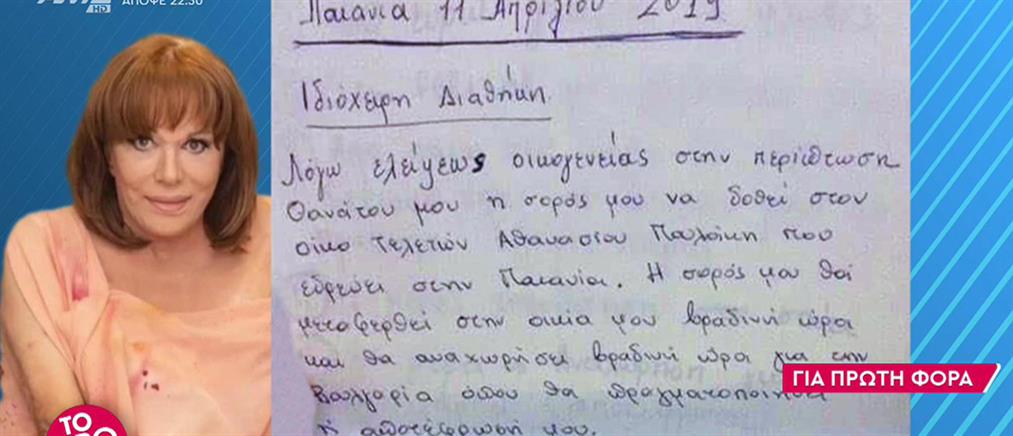 ANT1 HD ΑΠΟΨΕ 22.30
Παιανία 11 Απριλίου 2019
Ιδιόχειρη Διαθήκη
Λόγω ελείψεως οικογενείας στην περίπτωση
Θανάτου μου η σορός μου να δοθεί στον
οίκο Τελετών Αθανασίου Παυλάκη που
εδρεύει στην Παιανία. Η σορός μου θα
μεταφερθεί στην οικία μου βραδινή ώρα
και θα αναχωρήσει βραδινή ώρα για την
Βουλγαρία όπου θα πραγματοποιηθεί
η αποτέφρωσή μου.
ΓΙΑ ΠΡΩΤΗ ΦΟΡΑ
ΤΟ